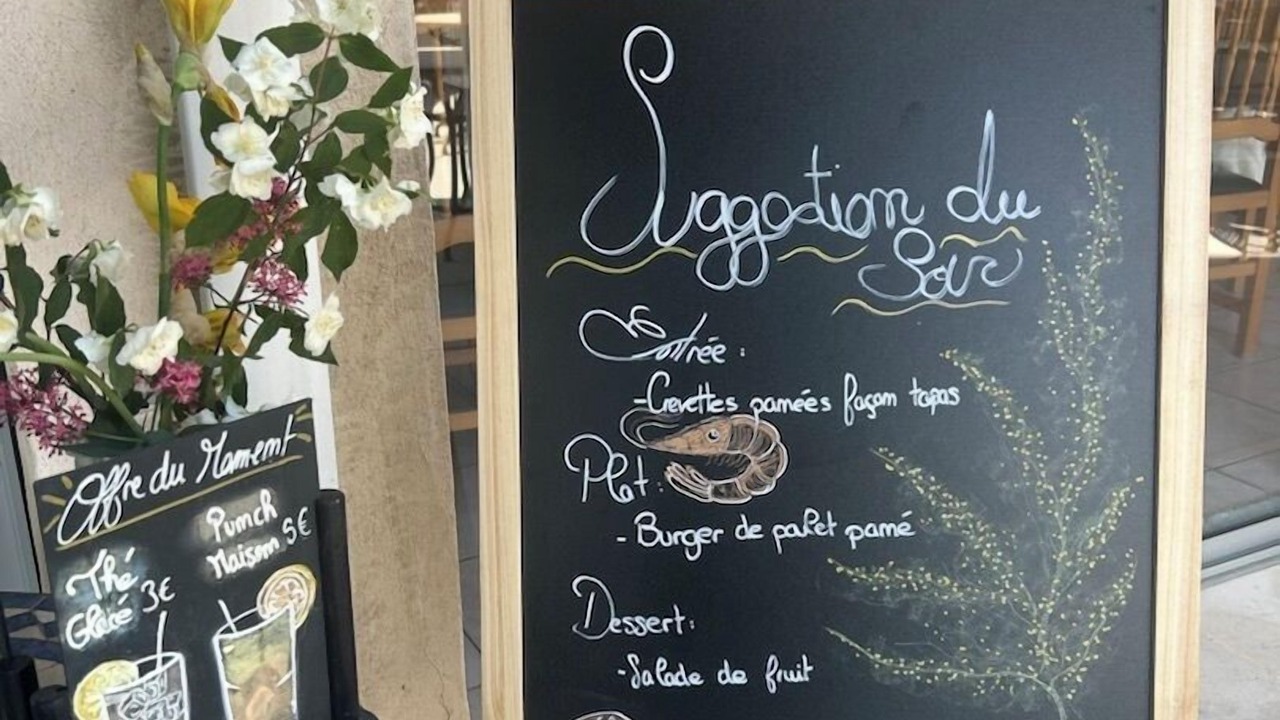 Suggestion du
Soir
Entrée :
-Crevettes panées façon tapas
Plat :
- Burger de palet pané
Dessert :
-Salade de fruit
Offre du Moment
Thé
Glacé 3€
Punch
Maison 5€